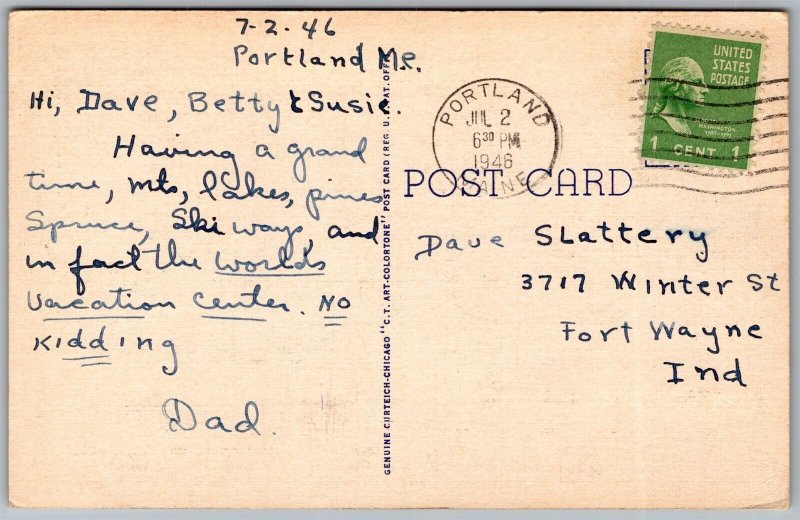 7-2-46
Portland Me.
Hi, Dave, Betty & Susie.
Having a grand
time, mts, lakes, pines
Spruce, Ski ways, and
in fact the worlds
Vacation Center. NO
kidding
Dad.
GENUINE CURTEICH-CHICAGO "C.T. ART-COLORTONE" POST CARD (REG. U.S. PAT. OFF.)
PORTLAND
JUL 2
6 30 PM
1946
MAINE
UNITED
STATES
POSTAGE
WASHINGTON
1 CENT 1
POST CARD
Dave Slattery
3717 Winter St
Fort Wayne
Ind